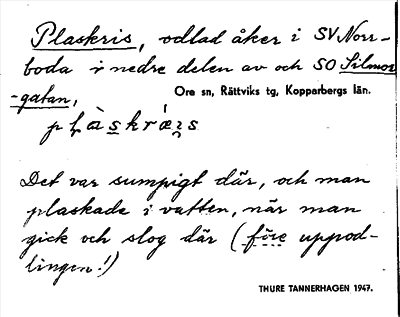 Plaskris, odlad åker i SV Norr-
boda i nedre delen av och SO Silmos
-gatan,
Ore sn, Rättviks tg, Kopparbergs län.
Det var sumpigt där, och man
plaskade i vatten, när man
gick och slog där (före uppod-
lingen!)
THURE TANNERHAGEN 1947.